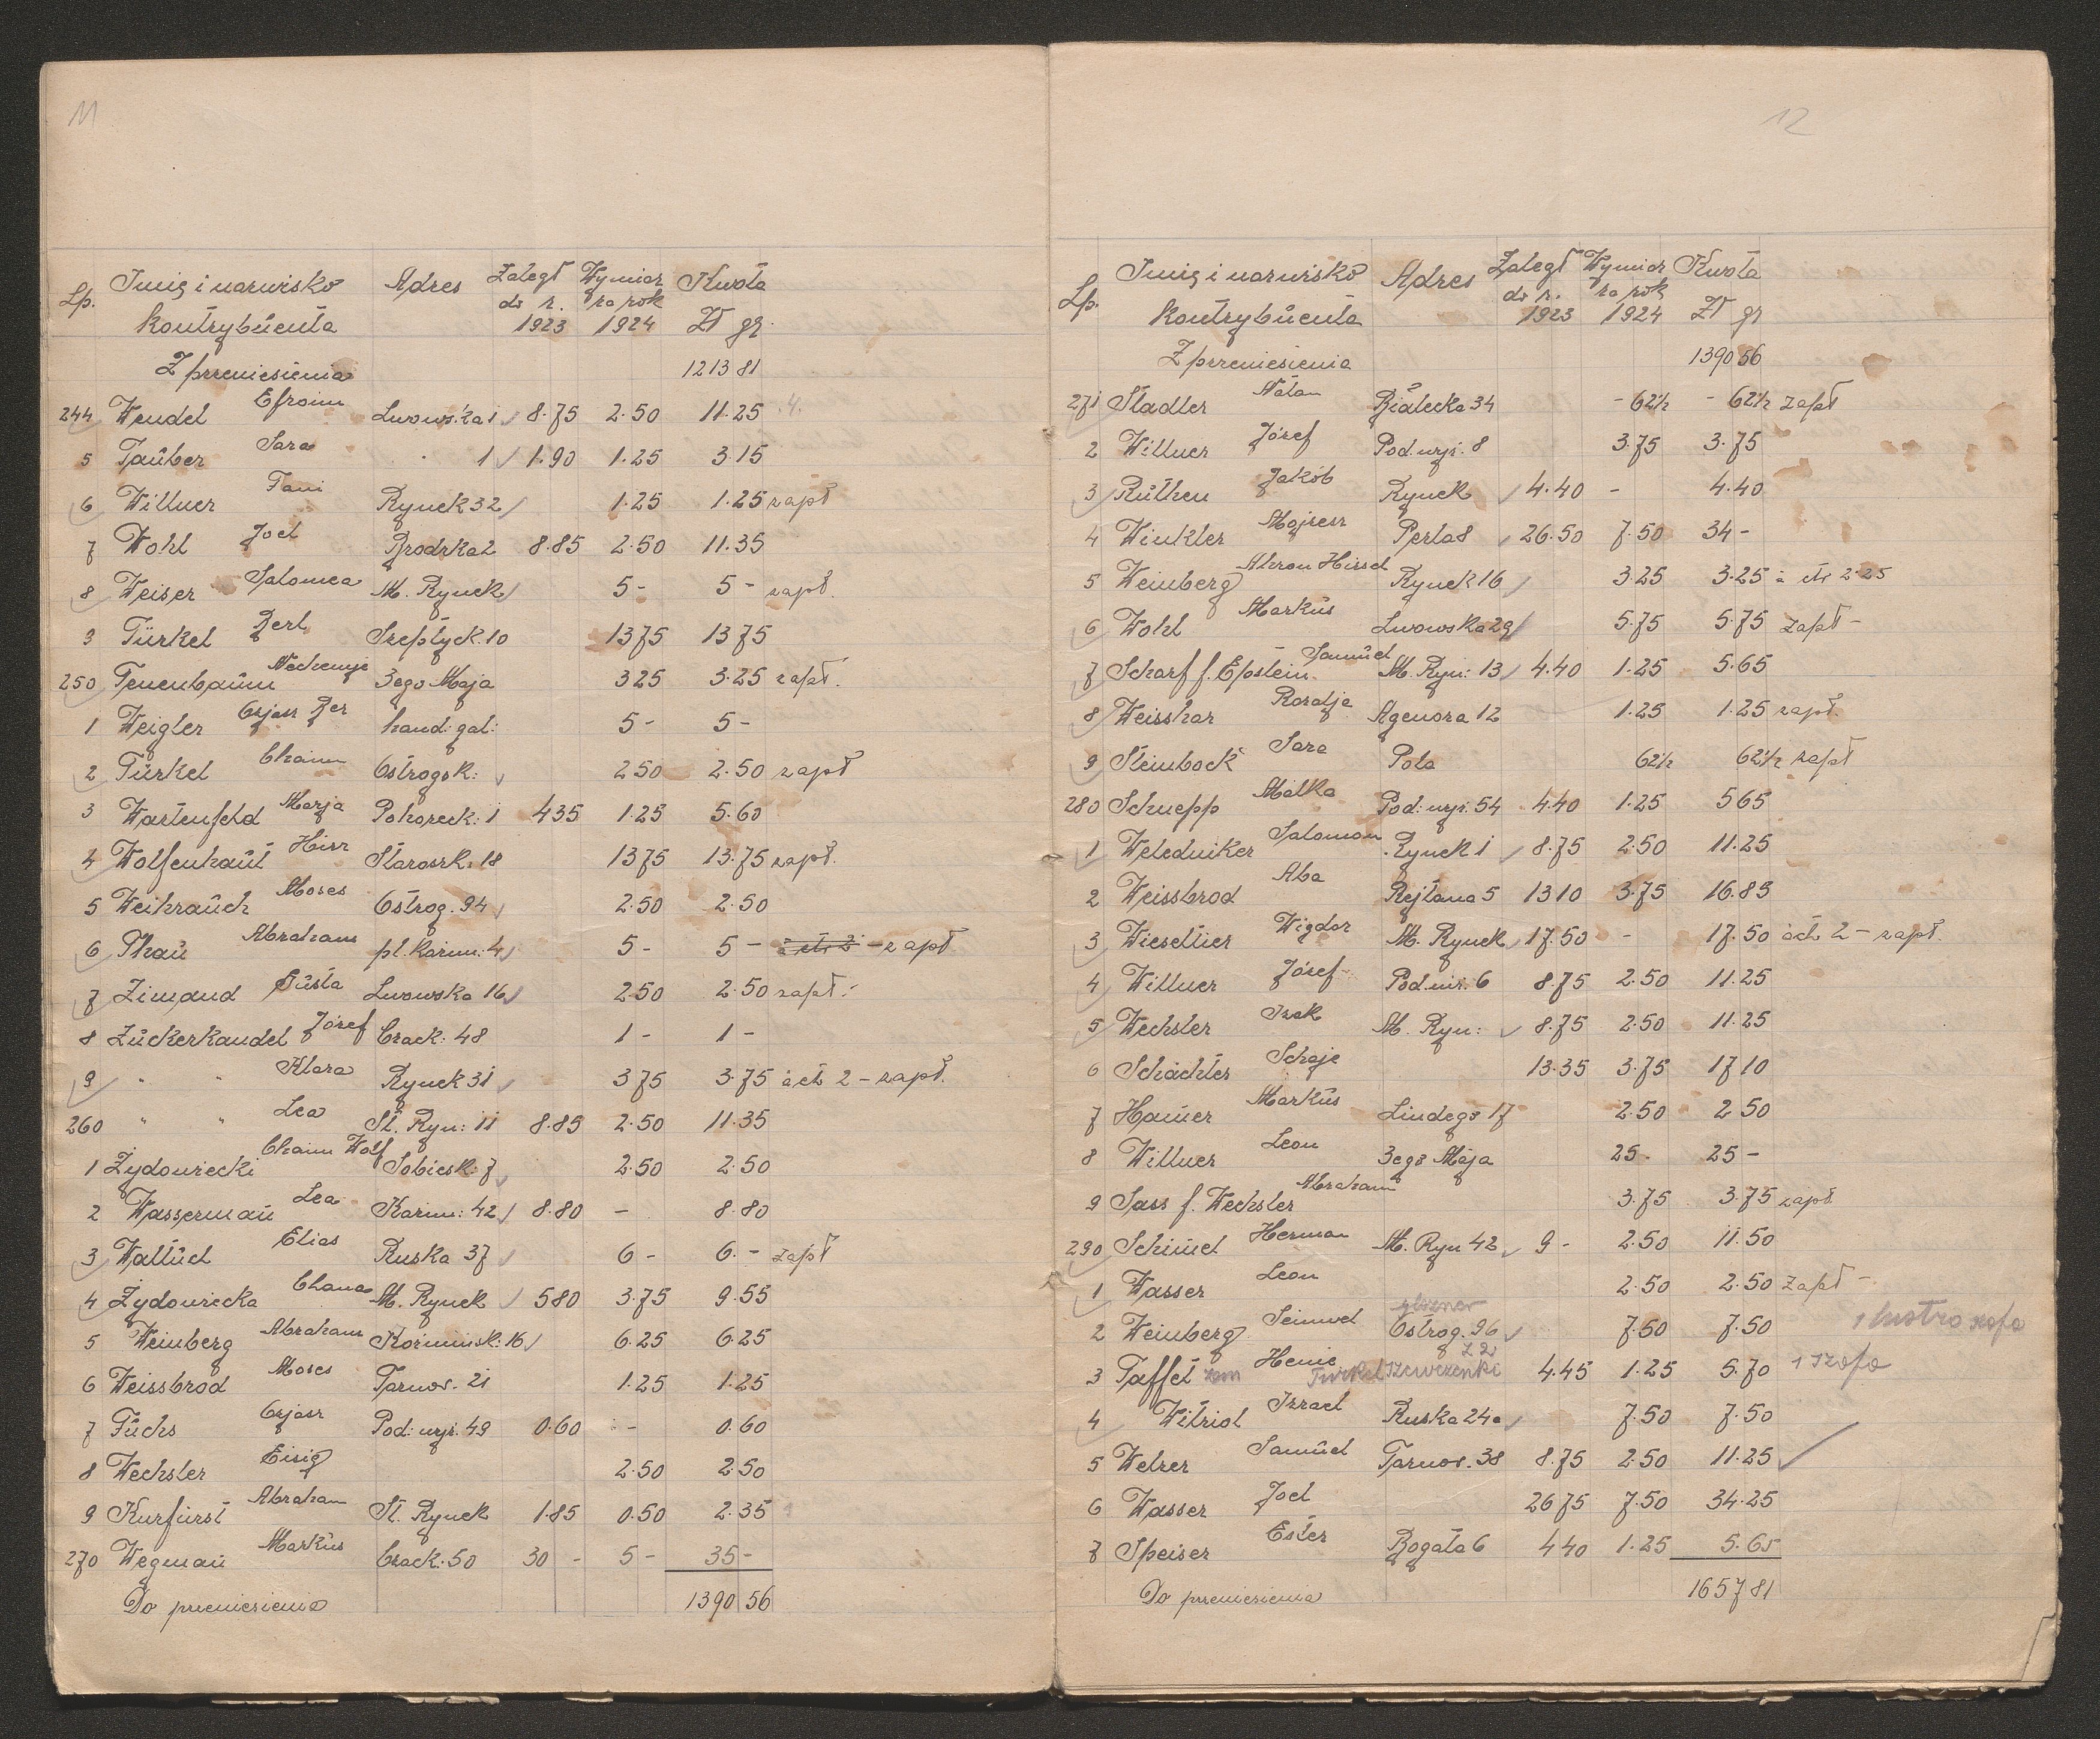 11
Lp. Imię i nazwisko kontrybuenta Adres Zaległ do r. 1923 Wymiar za rok 1924 Kwota Zł gr.
Z przeniesienia 1213 81
244 Wendel Efroim Lwowska 1 8.75 2.50 11.25
5 Tauber Sara " 1 1.90 1.25 3.15
6 Willner Fani Rynek 32 1.25 1.25 zapł
7 Wohl Joel Brodzka 2 8.85 2.50 11.35
8 Weiser Salomea M. Rynek 5- 5- zapł.
9 Türkel Berl Szeptyck. 10 13 75 13 75
250 Tenenbaum Nechemje 3ego Maja 3 25 3.25 zapł.
1 Weigler Ozjasz Ber hand: gal: 5- 5-
2 Türkel Chaim Ostrogsk: 2 50 2.50 zapł
3 Wartenfeld Marja Pohoreck: 1 4 35 1.25 5.60
4 Wolfenhaut Hirz Starozk. 18 13 75 13.75 zapł.
5 Weihrauch Moses Ostrog. 94 2.50 2.50
6 Thau Abraham pl. Kazim: 4 5- 5- à ctr 3 - zapł
7 Zimand Gusta Lwowska 16 2.50 2.50 zapł:
8 Zuckerkandel Józef Crack: 48 1- 1-
9 " " Klara Rynek 31 3 75 3.75 à ct 2 - zapł.
260 " " Lea St. Ryn: 11 8.85 2.50 11.35
1 Żydowiecki Chaim Wolf Sobiesk: 7 2.50 2.50
2 Wasserman Lea Kazim: 42 8.80 - 8.80
3 Wallach Elias Ruska 37 6- 6.- zapł
4 Żydowiecka Chana M. Rynek 5 80 3.75 9.55
5 Weinberg Abraham Kozminsk: 16 6.25 6.25
6 Weissbrod Moses Tarnow. 21 1.25 1.25
7 Fuchs Ozjasz Pod: wyż. 49 0.60 - 0.60
8 Wechsler Eisig 2.50 2.50
9 Kurfürst Abraham St. Rynek 1.85 0.50 2.35
270 Wegman Markus Crack: 50 30 - 5- 35-
Do przeniesienia 1390 56
12
Lp. Imię i nazwisko kontrybuenta Adres Zaległ do r. 1923 Wymiar za rok 1924 Kwota Zł gr
Z przeniesienia 1390 56
271 Stadler Natan Białecka 34 - 62½ - 62½ zapł
2 Willner Józef Pod. wyż. 8 3.75 3.75
3 Ruthen Jakób Rynek 4.40 - 4.40
4 Winkler Mojżesz Perla 8 26.50 7.50 34-
5 Weinberg Ahron Hirsch Rynek 16 3.25 3.25 à ctr 2.25
6 Wohl Markus Lwowska 29 5.75 5.75 zapł-
7 Scharf f. Epstein Samuel M. Ryn: 13 4.40 1.25 5.65
8 Weisshar Rozalja Agenora 12 1.25 1.25 zapł.
9 Steinbock Sara Pola 62½ 62½ zapł
280 Schnepp Malka Pod: wyż. 54 4.40 1.25 5 65
1 Weledniker Salomon Rynek 1 8.75 2.50 11.25
2 Weissbrod Aba Rejtana 5 13 10 3.75 16.85
3 Wieseltier Wigdor M. Rynek 17.50 - 17.50 à ct 2 - zapł.
4 Willner Józef Pod. niż. 6 8.75 2.50 11.25
5 Wechsler Izak M. Ryn: 8.75 2.50 11.25
6 Schächter Schaje 13.35 3.75 17 10
7 Hamer Markus Lindego 17 2.50 2 50
8 Willner Leon 3ego Maja 25- 25-
9 Sass f. Wechsler Abraham 3.75 3.75 zapł.
290 Schimel Herman M. Ryn 42 9 - 2.50 11.50
1 Wasser Leon 2.50 2.50 zapł-
2 Weinberg Seinwel Ostrog. 96 7.50 7.50 1 lustro szafa
3 Taffet Henie Türkel Szewczenki 22 4.45 1.25 5.70 1 szafa
4 Witriol Izrael Ruska 24a 7.50 7.50
5 Welzer Samuel Tarnow. 38 8.75 2.50 11.25
6 Wasser Joel 26 75 7.50 34.25
7 Speiser Ester Bogata 6 4 40 1.25 5.65
Do przeniesienia 1657 81